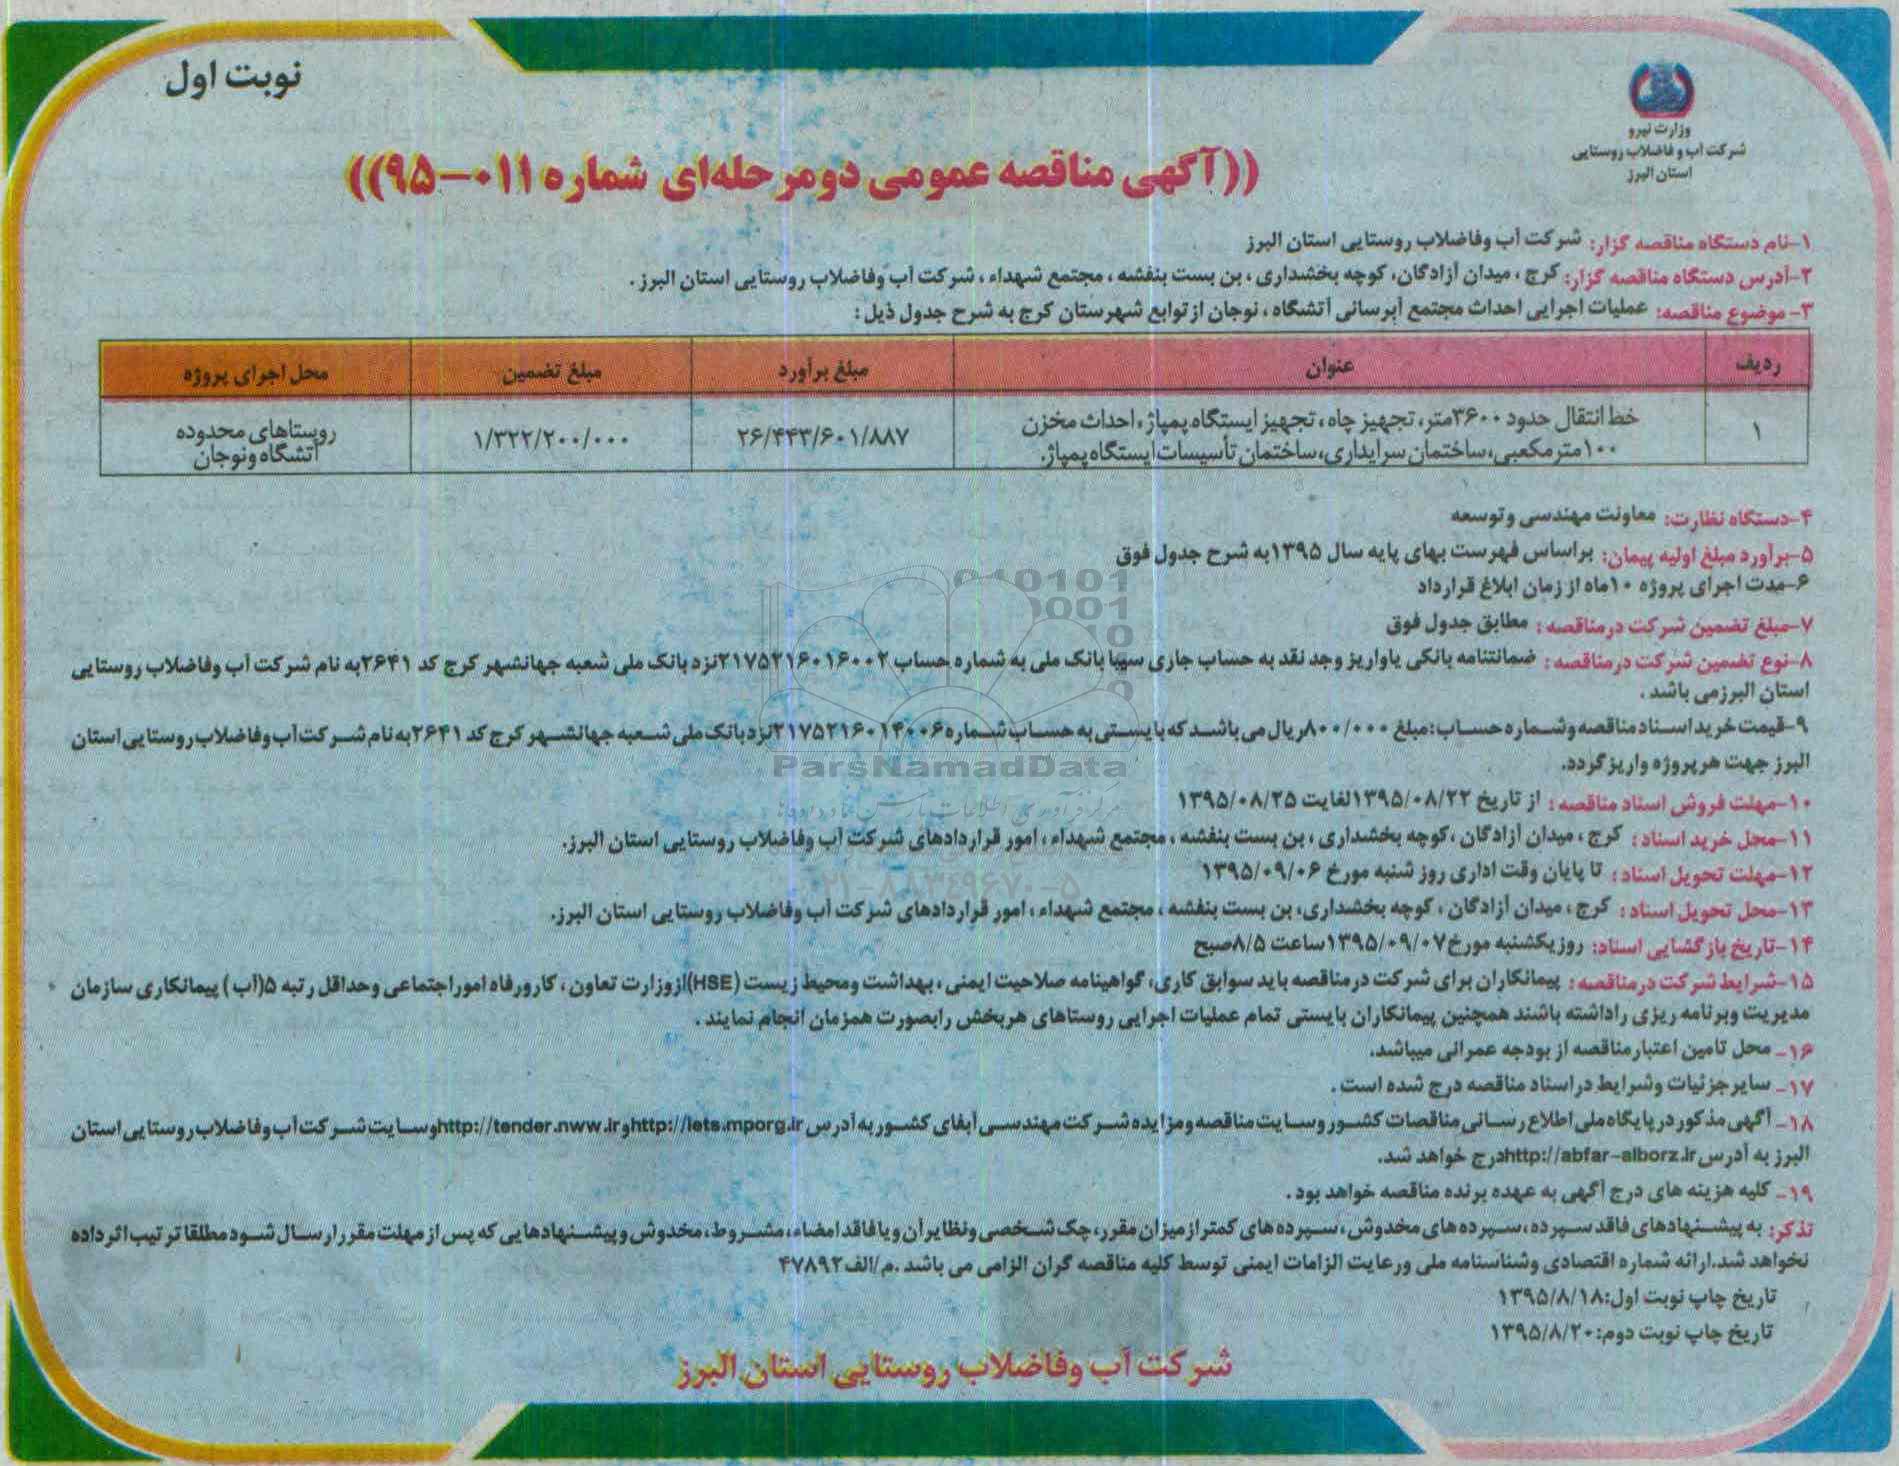 نوبت اول
وزارت نیرو
شرکت آب و فاضلاب روستایی
استان البرز
((آگهی مناقصه عمومی دومرحله‌ای شماره ۰۱۱-۹۵))
۱-نام دستگاه مناقصه گزار: شرکت آب وفاضلاب روستایی استان البرز
۲-آدرس دستگاه مناقصه گزار: کرج ، میدان آزادگان، کوچه بخشداری ، بن بست بنفشه ، مجتمع شهداء ، شرکت آب وفاضلاب روستایی استان البرز .
۳- موضوع مناقصه: عملیات اجرایی احداث مجتمع آبرسانی آتشگاه ، نوجان از توابع شهرستان کرج به شرح جدول ذیل :
ردیف عنوان مبلغ برآورد مبلغ تضمین محل اجرای پروژه
۱ خط انتقال حدود ۳۶۰۰متر، تجهیز چاه ، تجهیز ایستگاه پمپاژ، احداث مخزن ۱۰۰مترمکعبی، ساختمان سرایداری، ساختمان تأسیسات ایستگاه پمپاژ. ۲۶/۴۴۳/۶۰۱/۸۸۷ ۱/۳۲۲/۲۰۰/۰۰۰ روستاهای محدوده آتشگاه ونوجان
۴-دستگاه نظارت: معاونت مهندسی وتوسعه
۵-برآورد مبلغ اولیه پیمان: براساس فهرست بهای پایه سال ۱۳۹۵به شرح جدول فوق
۶-مدت اجرای پروژه ۱۰ماه از زمان ابلاغ قرارداد
۷-مبلغ تضمین شرکت درمناقصه : مطابق جدول فوق
۸-نوع تضمین شرکت درمناقصه : ضمانتنامه بانکی یاواریز وجد نقد به حساب جاری سیبا بانک ملی به شماره حساب ۲۱۷۵۲۱۶۰۱۶۰۰۲نزد بانک ملی شعبه جهانشهر کرج کد ۲۶۴۱به نام شرکت آب وفاضلاب روستایی
استان البرزمی باشد .
۹-قیمت خرید اسناد مناقصه وشماره حساب: مبلغ ۸۰۰/۰۰۰ریال می باشد که بایستی به حساب شماره ۲۱۷۵۲۱۶۰۱۴۰۰۶نزد بانک ملی شعبه جهانشهر کرج کد ۲۶۴۱به نام شرکت آب وفاضلاب روستایی استان
البرز جهت هرپروژه واریز گردد.
ParsNamadData
۱۰-مهلت فروش اسناد مناقصه : از تاریخ ۱۳۹۵/۰۸/۲۲لغایت ۱۳۹۵/۰۸/۲۵
۱۱-محل خرید اسناد : کرج ، میدان آزادگان ،کوچه بخشداری ، بن بست بنفشه ، مجتمع شهداء ، امور قراردادهای شرکت آب وفاضلاب روستایی استان البرز.
۱۲-مهلت تحویل اسناد : تا پایان وقت اداری روز شنبه مورخ ۱۳۹۵/۰۹/۰۶
۰۲۱-۸۸۳۴۹۶۷۰-۵
۱۳-محل تحویل اسناد : کرج ، میدان آزادگان ، کوچه بخشداری، بن بست بنفشه ، مجتمع شهداء ، امور قراردادهای شرکت آب وفاضلاب روستایی استان البرز.
۱۴-تاریخ بازگشایی اسناد: روز یکشنبه مورخ ۱۳۹۵/۰۹/۰۷ساعت ۸/۵صبح
۱۵-شرایط شرکت درمناقصه : پیمانکاران برای شرکت درمناقصه باید سوابق کاری، گواهینامه صلاحیت ایمنی ، بهداشت ومحیط زیست (HSE)ازوزارت تعاون ، کارورفاه اموراجتماعی وحداقل رتبه ۵(آب ) پیمانکاری سازمان
مدیریت وبرنامه ریزی راداشته باشند همچنین پیمانکاران بایستی تمام عملیات اجرایی روستاهای هربخش رابصورت همزمان انجام نمایند .
۱۶_ محل تامین اعتبارمناقصه از بودجه عمرانی میباشد.
۱۷_ سایرجزئیات وشرایط دراسناد مناقصه درج شده است .
۱۸_ آگهی مذکور در پایگاه ملی اطلاع رسانی مناقصات کشور وسایت مناقصه ومزایده شرکت مهندسی آبفای کشور به آدرس http://iets.mporg.irو http://tender.nww.irوسایت شرکت آب وفاضلاب روستایی استان
البرز به آدرس http://abfar-alborz.irدرج خواهد شد.
۱۹_ کلیه هزینه های درج آگهی به عهده برنده مناقصه خواهد بود .
تذکر: به پیشنهادهای فاقد سپرده، سپرده های مخدوش ، سپرده های کمتر از میزان مقرر، چک شخصی ونظایر آن ویا فاقد امضاء، مشروط، مخدوش وپیشنهادهایی که پس از مهلت مقرر ارسال شود مطلقا ترتیب اثر داده
نخواهد شد.ارائه شماره اقتصادی وشناسنامه ملی ورعایت الزامات ایمنی توسط کلیه مناقصه گران الزامی می باشد .م/الف۴۷۸۹۲
تاریخ چاپ نوبت اول:۱۳۹۵/۸/۱۸
تاریخ چاپ نوبت دوم:۱۳۹۵/۸/۲۰
شرکت آب وفاضلاب روستایی استان البرز